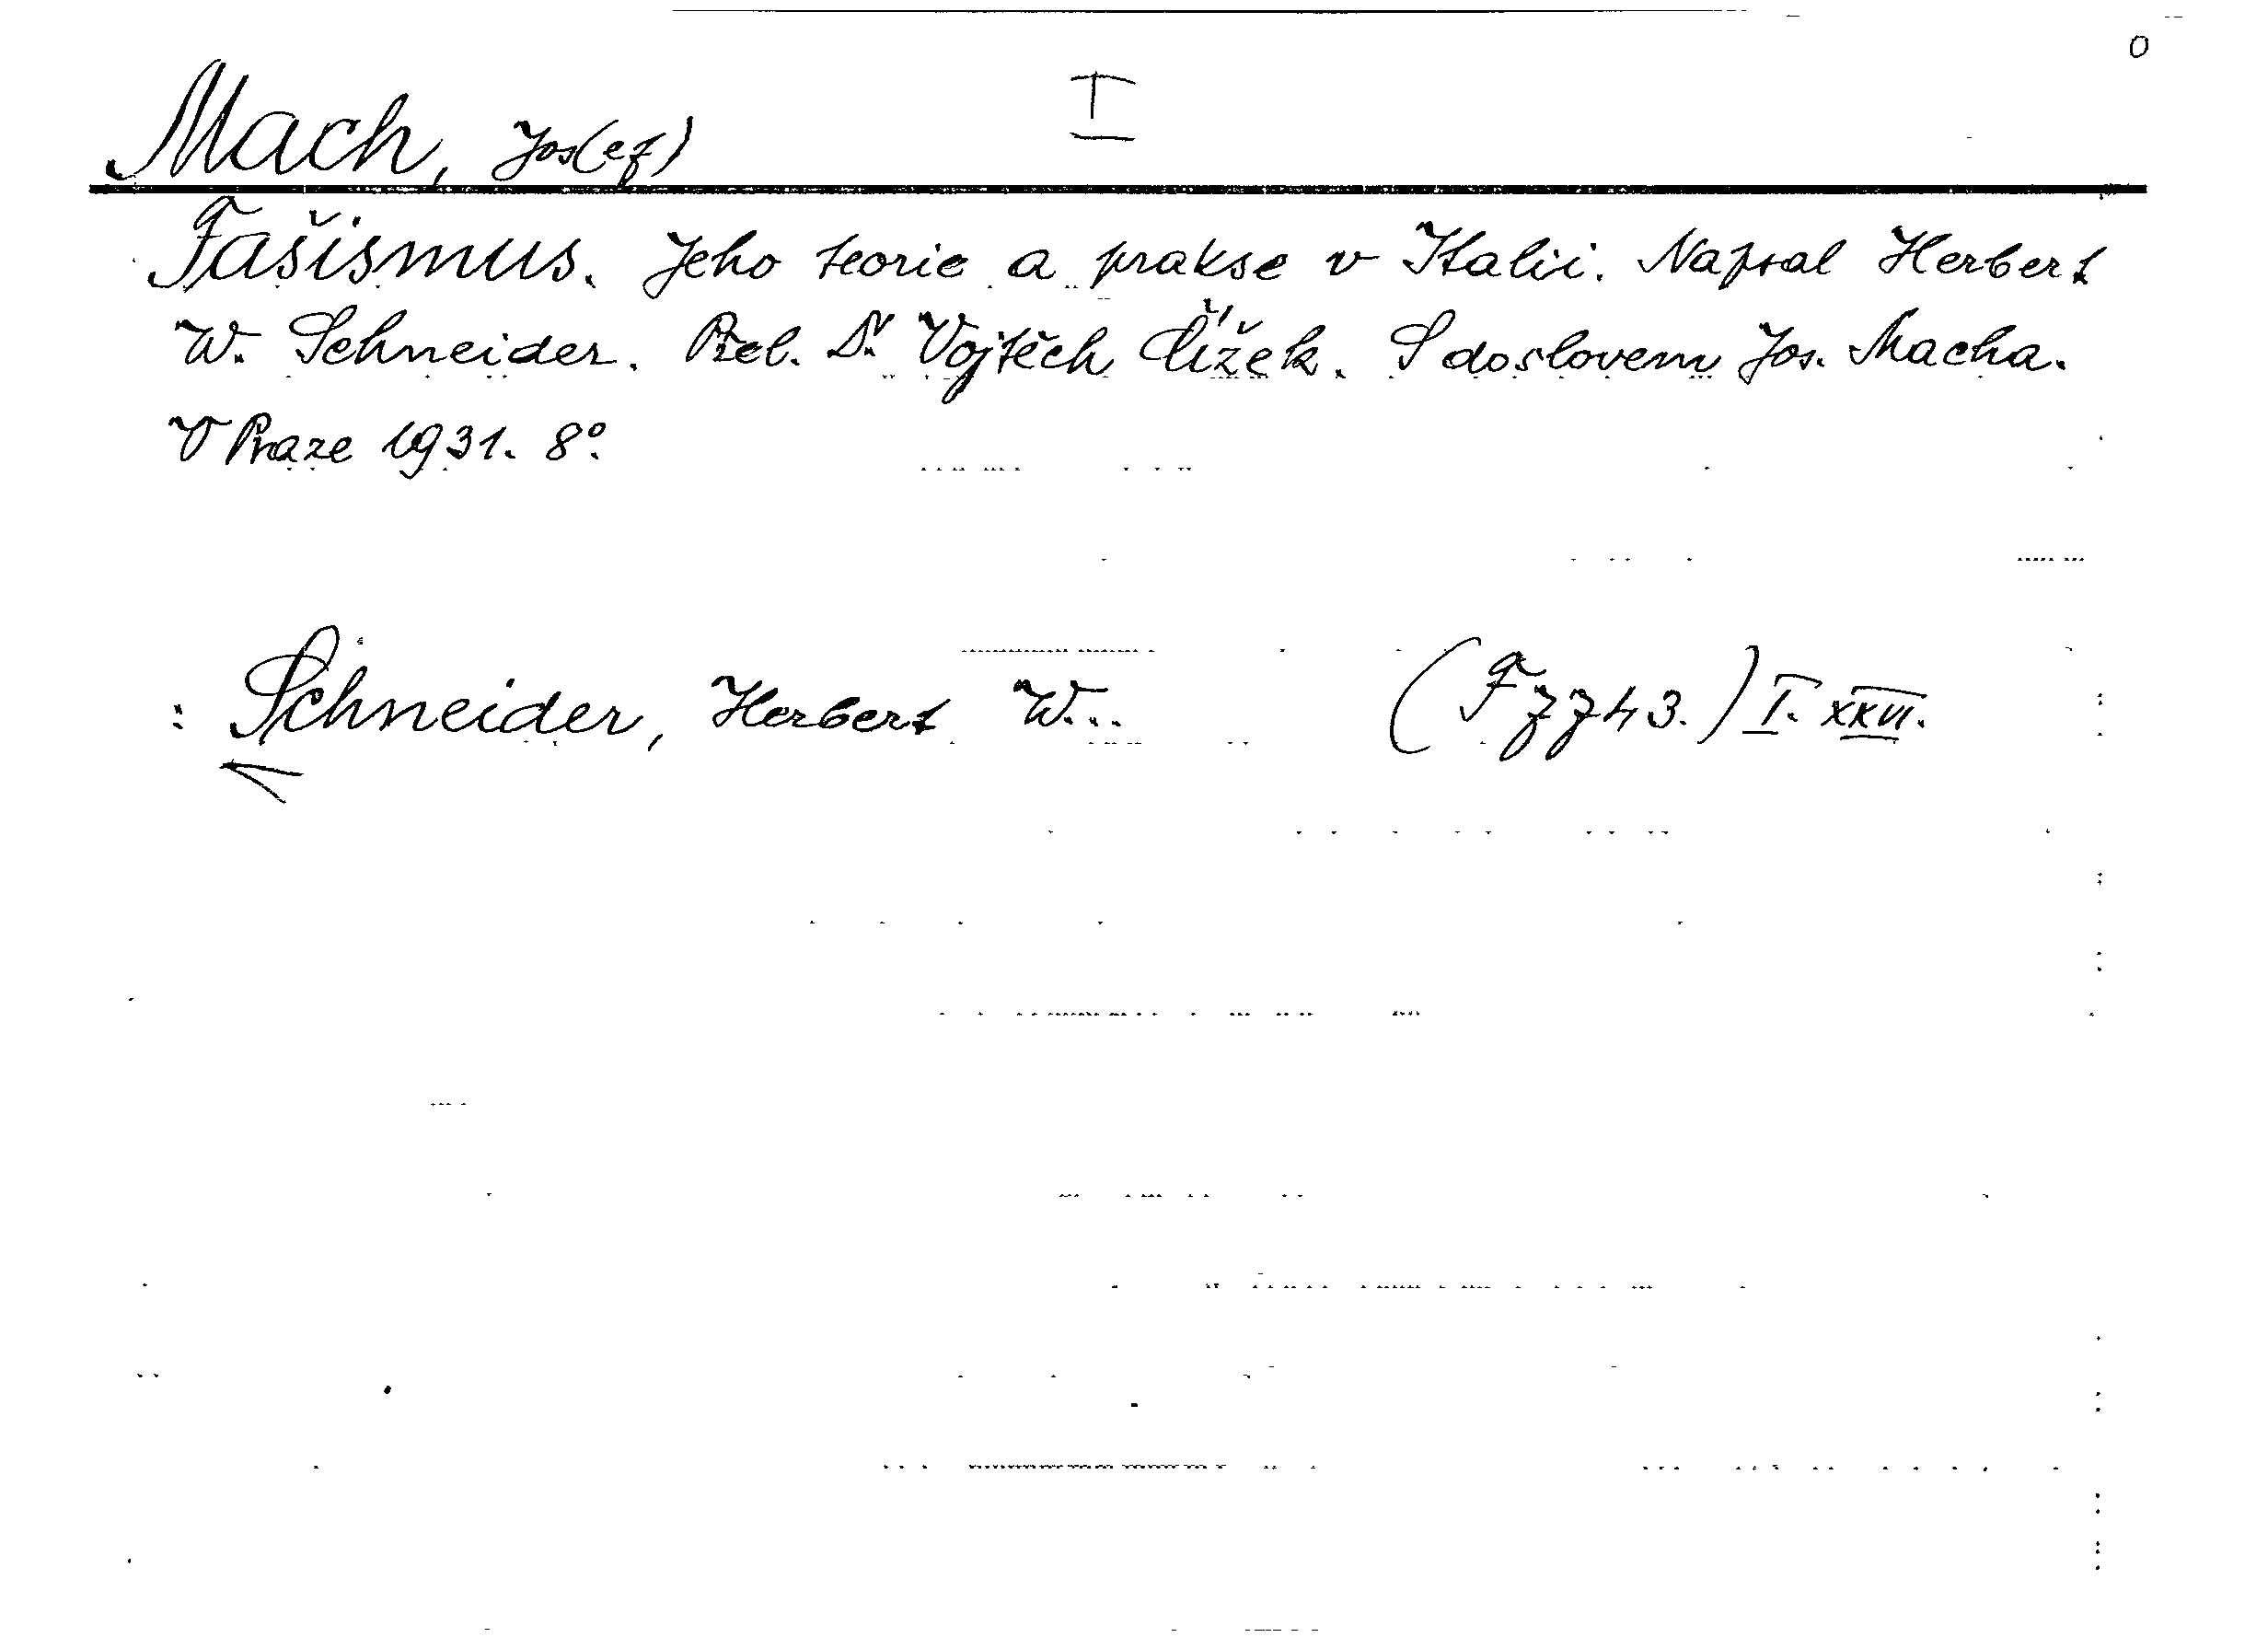 0
I
Mach, Jos(ef)
Fašismus. Jeho teorie a prakse v Italii. Napsal Herbert
W. Schneider. Přel. Dr Vojtěch Čížek. S doslovem Jos. Macha.
V Praze 1931. 8°.
: Schneider, Herbert W... I. XXVI.